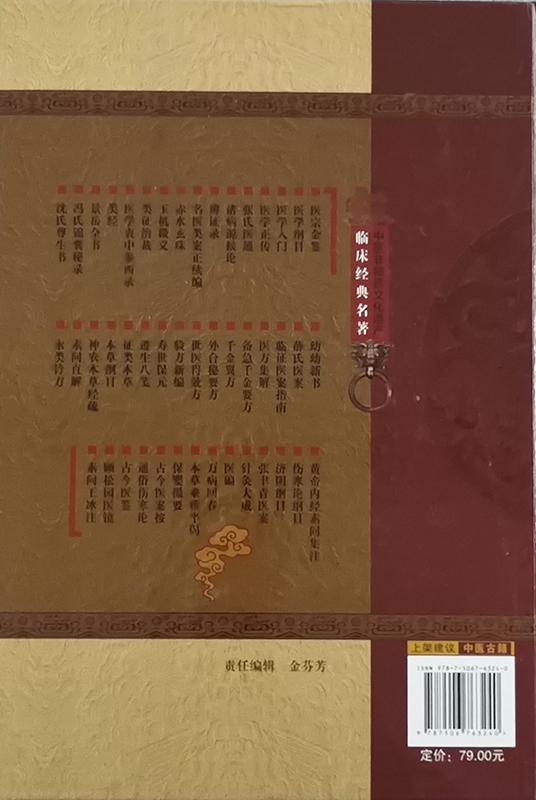 临床经典名著
医宗金鉴
医学纲目
医学入门
医学正传
张氏医通
诸病源候论
辨证录
名医类案正续编
赤水玄珠
玉机微义
类证治裁
医学衷中参西录
类经
景岳全书
冯氏锦囊秘录
沈氏尊生书
幼幼新书
薛氏医案
临证医案指南
医方集解
备急千金要方
千金翼方
外台秘要方
世医得效方
验方新编
寿世保元
遵生八笺
证类本草
本草纲目
神农本草经疏
素问直解
永类钤方
黄帝内经素问集注
伤寒论纲目
济阴纲目
张聿青医案
针灸大成
医碥
万病回春
本草乘雅半偈
保婴撮要
古今医案按
通俗伤寒论
古今医鉴
顾松园医镜
素问王冰注
责任编辑 金芬芳
上架建议 中医古籍
ISBN 978-7-5067-6324-0
9 787506 763240
定价：79.00元